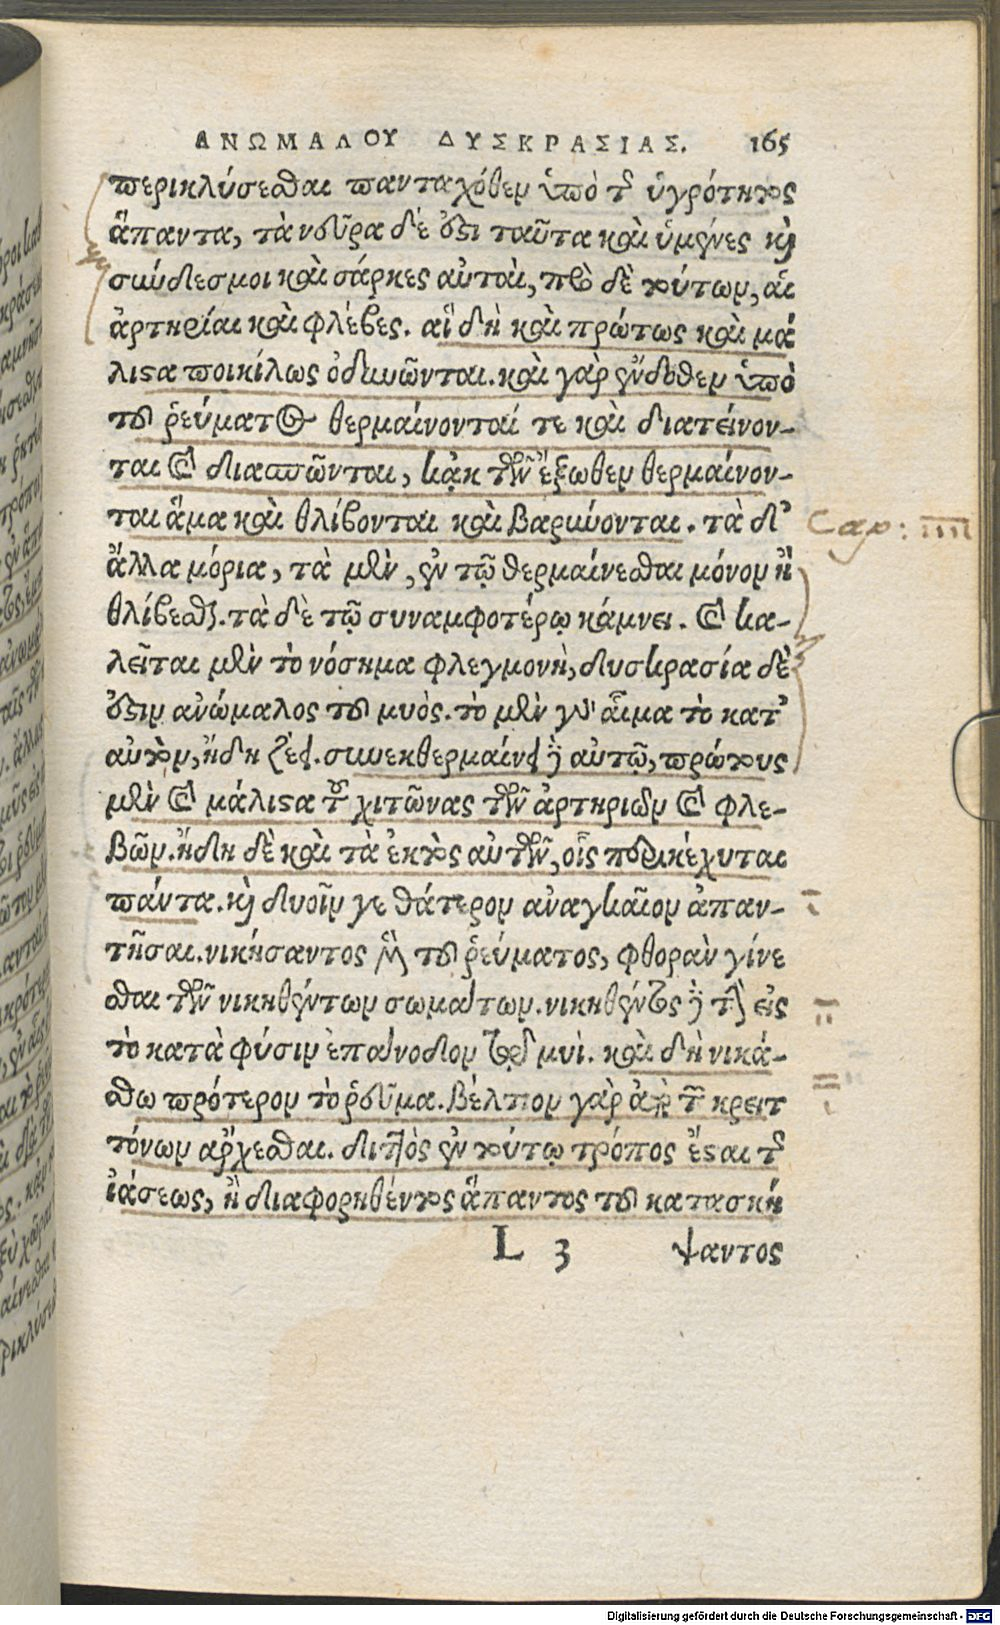 ΑΝΩΜΑΛΟΥ ΔΥΣΚΡΑΣΙΑΣ. 165
περικλύσεσθαι πανταχόθεν ὑπὸ τῆς ὑγρότητος
ἅπαντα, τὰ νεῦρα δέ ἐστι ταῦτα καὶ ὑμένες καὶ
σύνδεσμοι καὶ σάρκες αὐταὶ, πρὸ δὲ τούτων, αἱ
ἀρτηρίαι καὶ φλέβες. αἳ δὴ καὶ πρώτως καὶ μά
λιστα ποικίλως ὀδυνῶνται. καὶ γὰρ ἔνδοθεν ὑπὸ
τοῦ ῥεύματος θερμαίνονταί τε καὶ διατείνον-
ται καὶ διασπῶνται, κἀκ τῶν ἔξωθεν θερμαίνον-
ται ἅμα καὶ θλίβονται καὶ βαρύνονται. τὰ δ'
Cap: IIII
ἄλλα μόρια, τὰ μὲν, ἐν τῷ θερμαίνεσθαι μόνον ἢ
θλίβεσθαι. τὰ δὲ τῷ συναμφοτέρῳ κάμνει. καὶ κα-
λεῖται μὲν τὸ νόσημα φλεγμονὴ, δυσκρασία δέ
ἐστιν ἀνώμαλος τοῦ μυός. τὸ μὲν γὰρ αἷμα τὸ κατ'
αὐτὸν, ἤδη ζέει. συνεκθερμαίνει δὲ αὐτῷ, πρώτους
μὲν καὶ μάλιστα τοὺς χιτῶνας τῶν ἀρτηριῶν καὶ φλε-
βῶν. ἤδη δὲ καὶ τὰ ἐκτὸς αὐτῶν, οἷς περικέχυται
πάντα. καὶ δυοῖν γε θάτερον ἀναγκαῖον ἀπαν-
τῆσαι. νικήσαντος μὲν τοῦ ῥεύματος, φθορὰν γίνε
σθαι τῶν νικηθέντων σωμάτων. νικηθέντος δὲ τὴν εἰς
τὸ κατὰ φύσιν ἐπάνοδον τῷ μυί. καὶ δὴ νικά-
σθω πρότερον τὸ ῥεῦμα. βέλτιον γὰρ ἀπὸ τῶν κρειτ
τόνων ἄρχεσθαι. διττὸς ἐν τούτῳ τρόπος ἔσται τῆς
ἰάσεως, ἢ διαφορηθέντος ἅπαντος τοῦ κατασκή
L 3 ψαντος
Digitalisierung gefördert durch die Deutsche Forschungsgemeinschaft - DFG